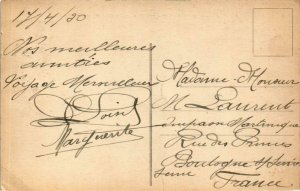 17/4/20
Nos meilleures
amitiés
Voyage Merveilleux
Marguerite
Madame - Monsieur
Laurent
impasse Martinique
Rue des
Boulogne s/ Seine
Seine
France